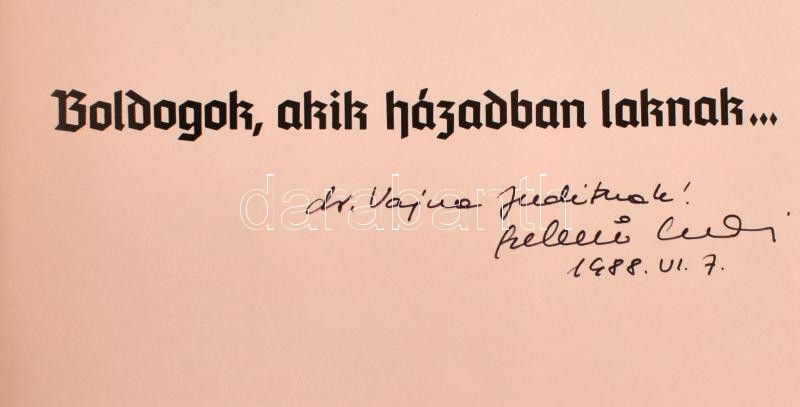 Boldogok, akik házadban laknak...
dr. Vajna Juditnak!
darabanth
1988. VI. 7.